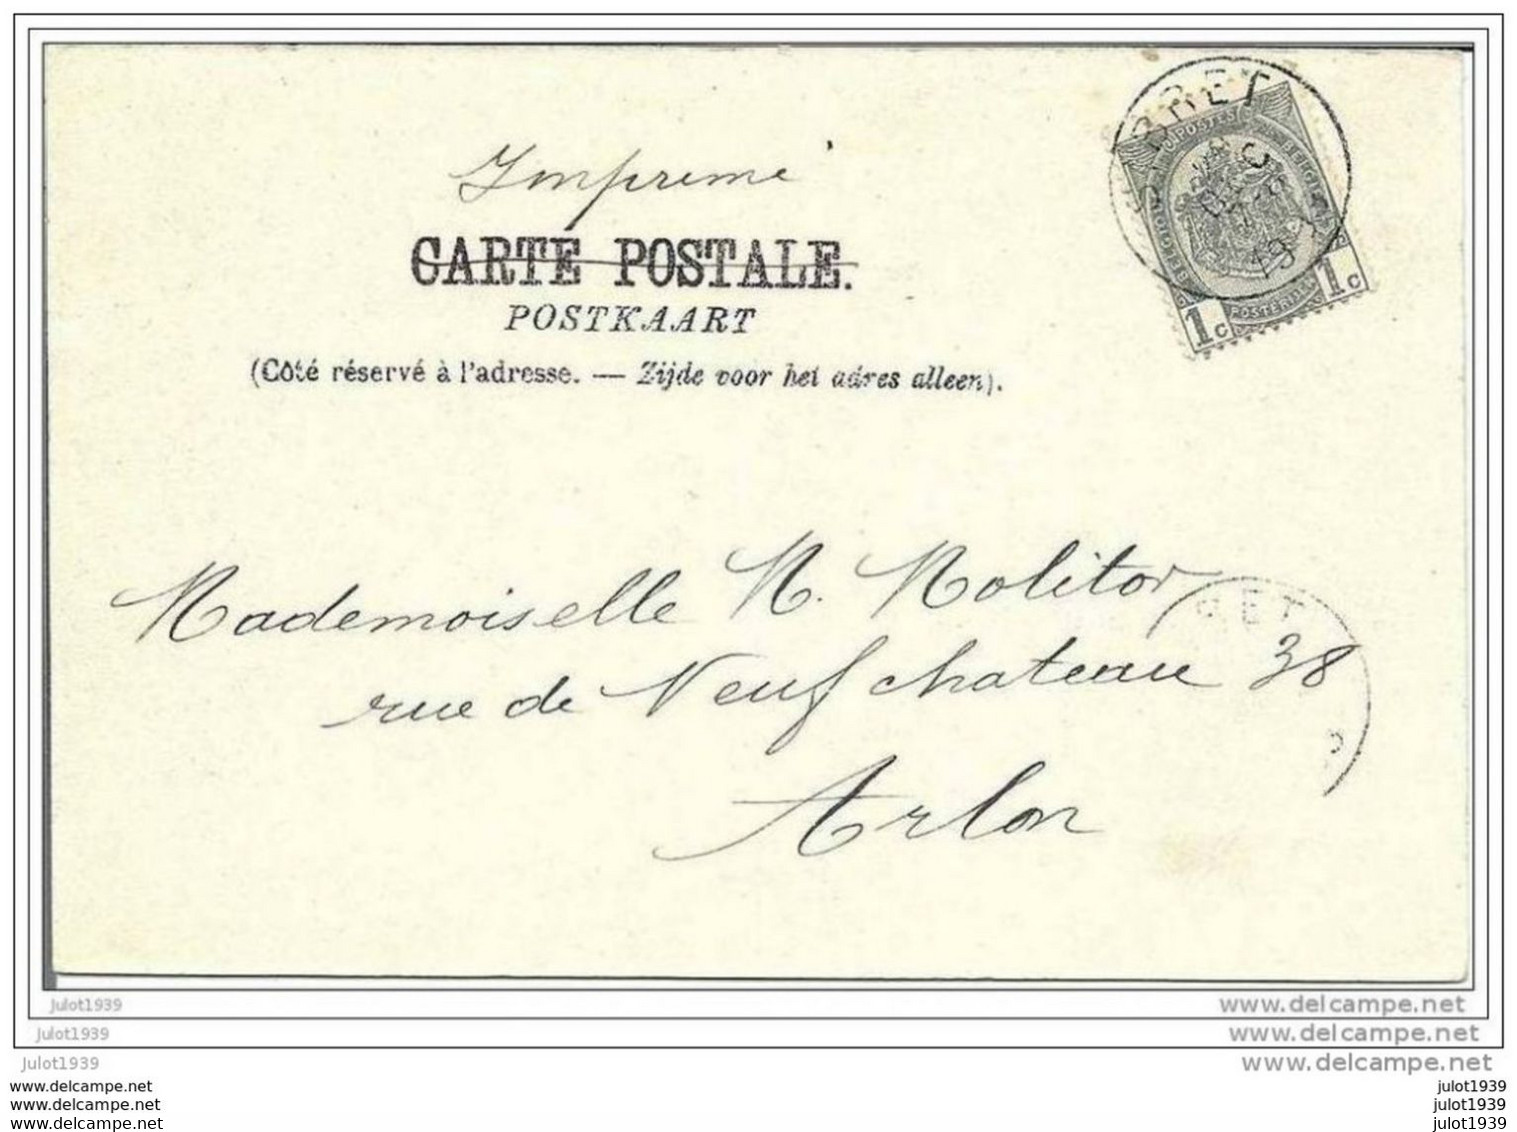 Imprimé
CARTE POSTALE.
POSTKAART
(Côté réservé à l'adresse. — Zijde voor het adres alleen).
POSTES BELGIQUE
POSTERIJEN
1c 1c
DEC
Mademoiselle M. Molitor
rue de Neufchateau 38
Arlon
julot1939 www.delcampe.net
julot1939 www.delcampe.net
julot1939 www.delcampe.net
www.delcampe.net julot1939
www.delcampe.net julot1939
www.delcampe.net julot1939